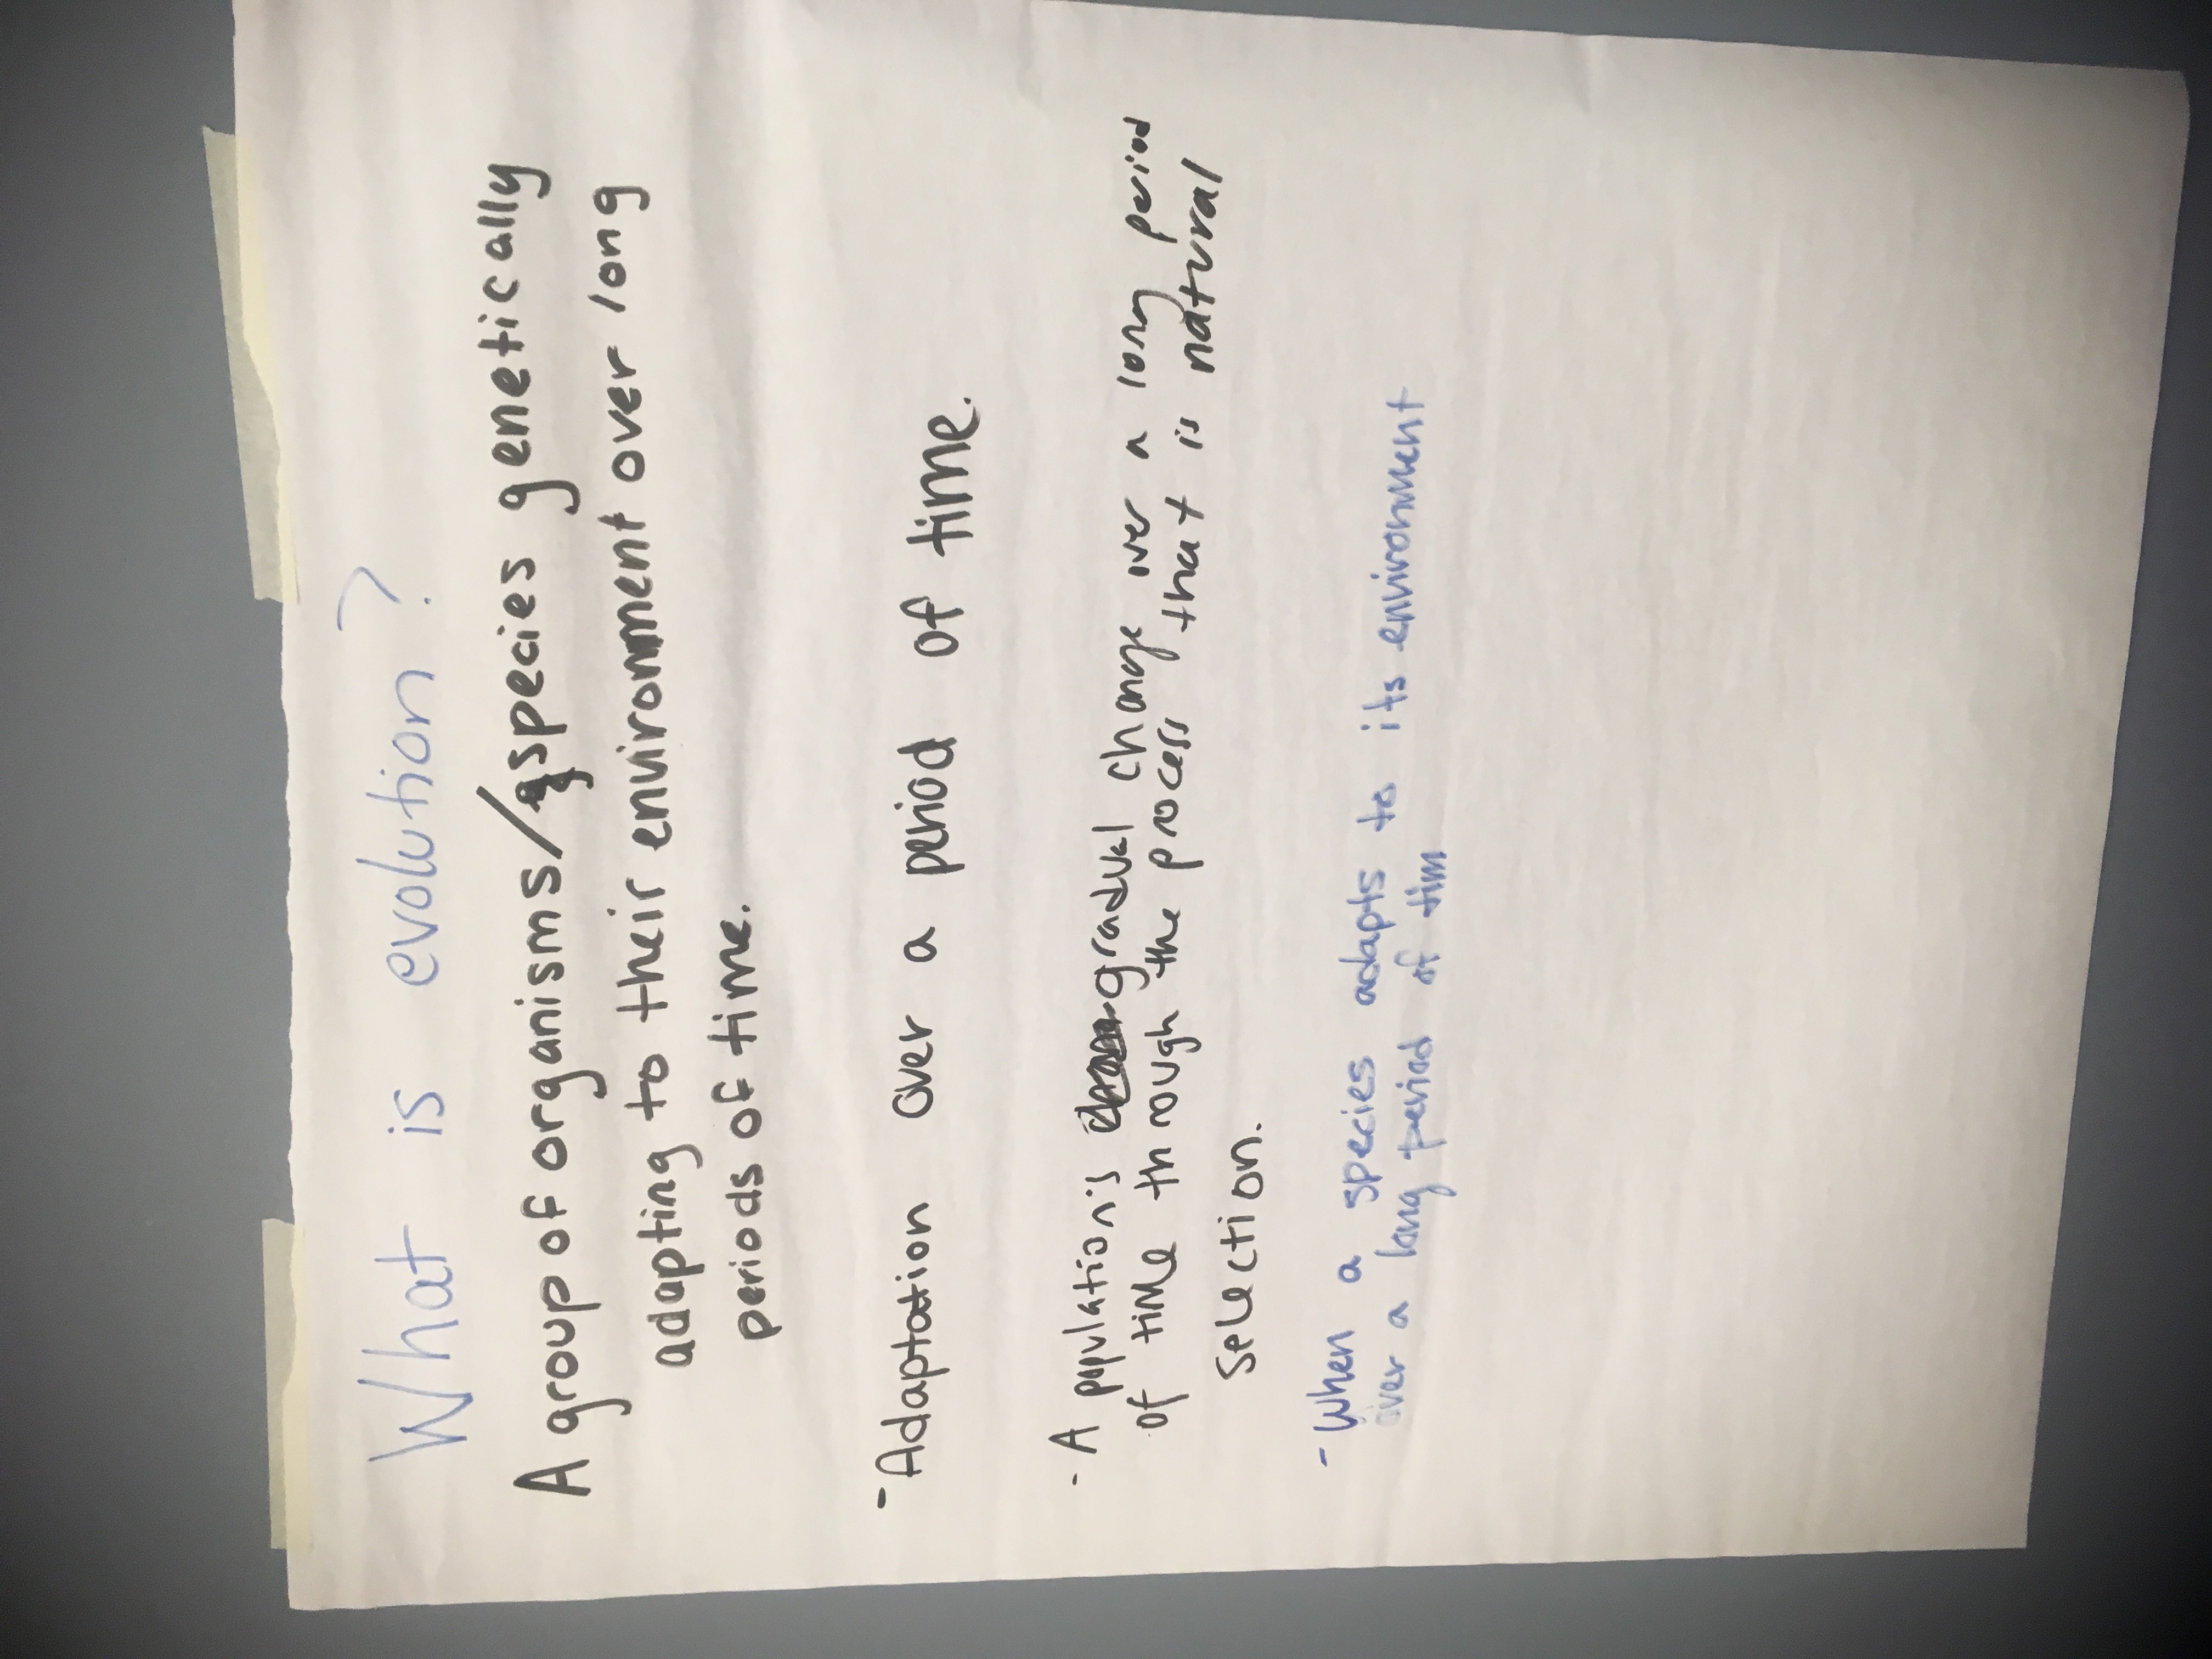 What is evolution?
A group of organisms/species genetically
adapting to their environment over long
periods of time.
-Adaptation over a period of time.
- A population's gradual change over a long period
of time through the process that is natural
selection.
-When a species adapts to its environment
over a long period of tim